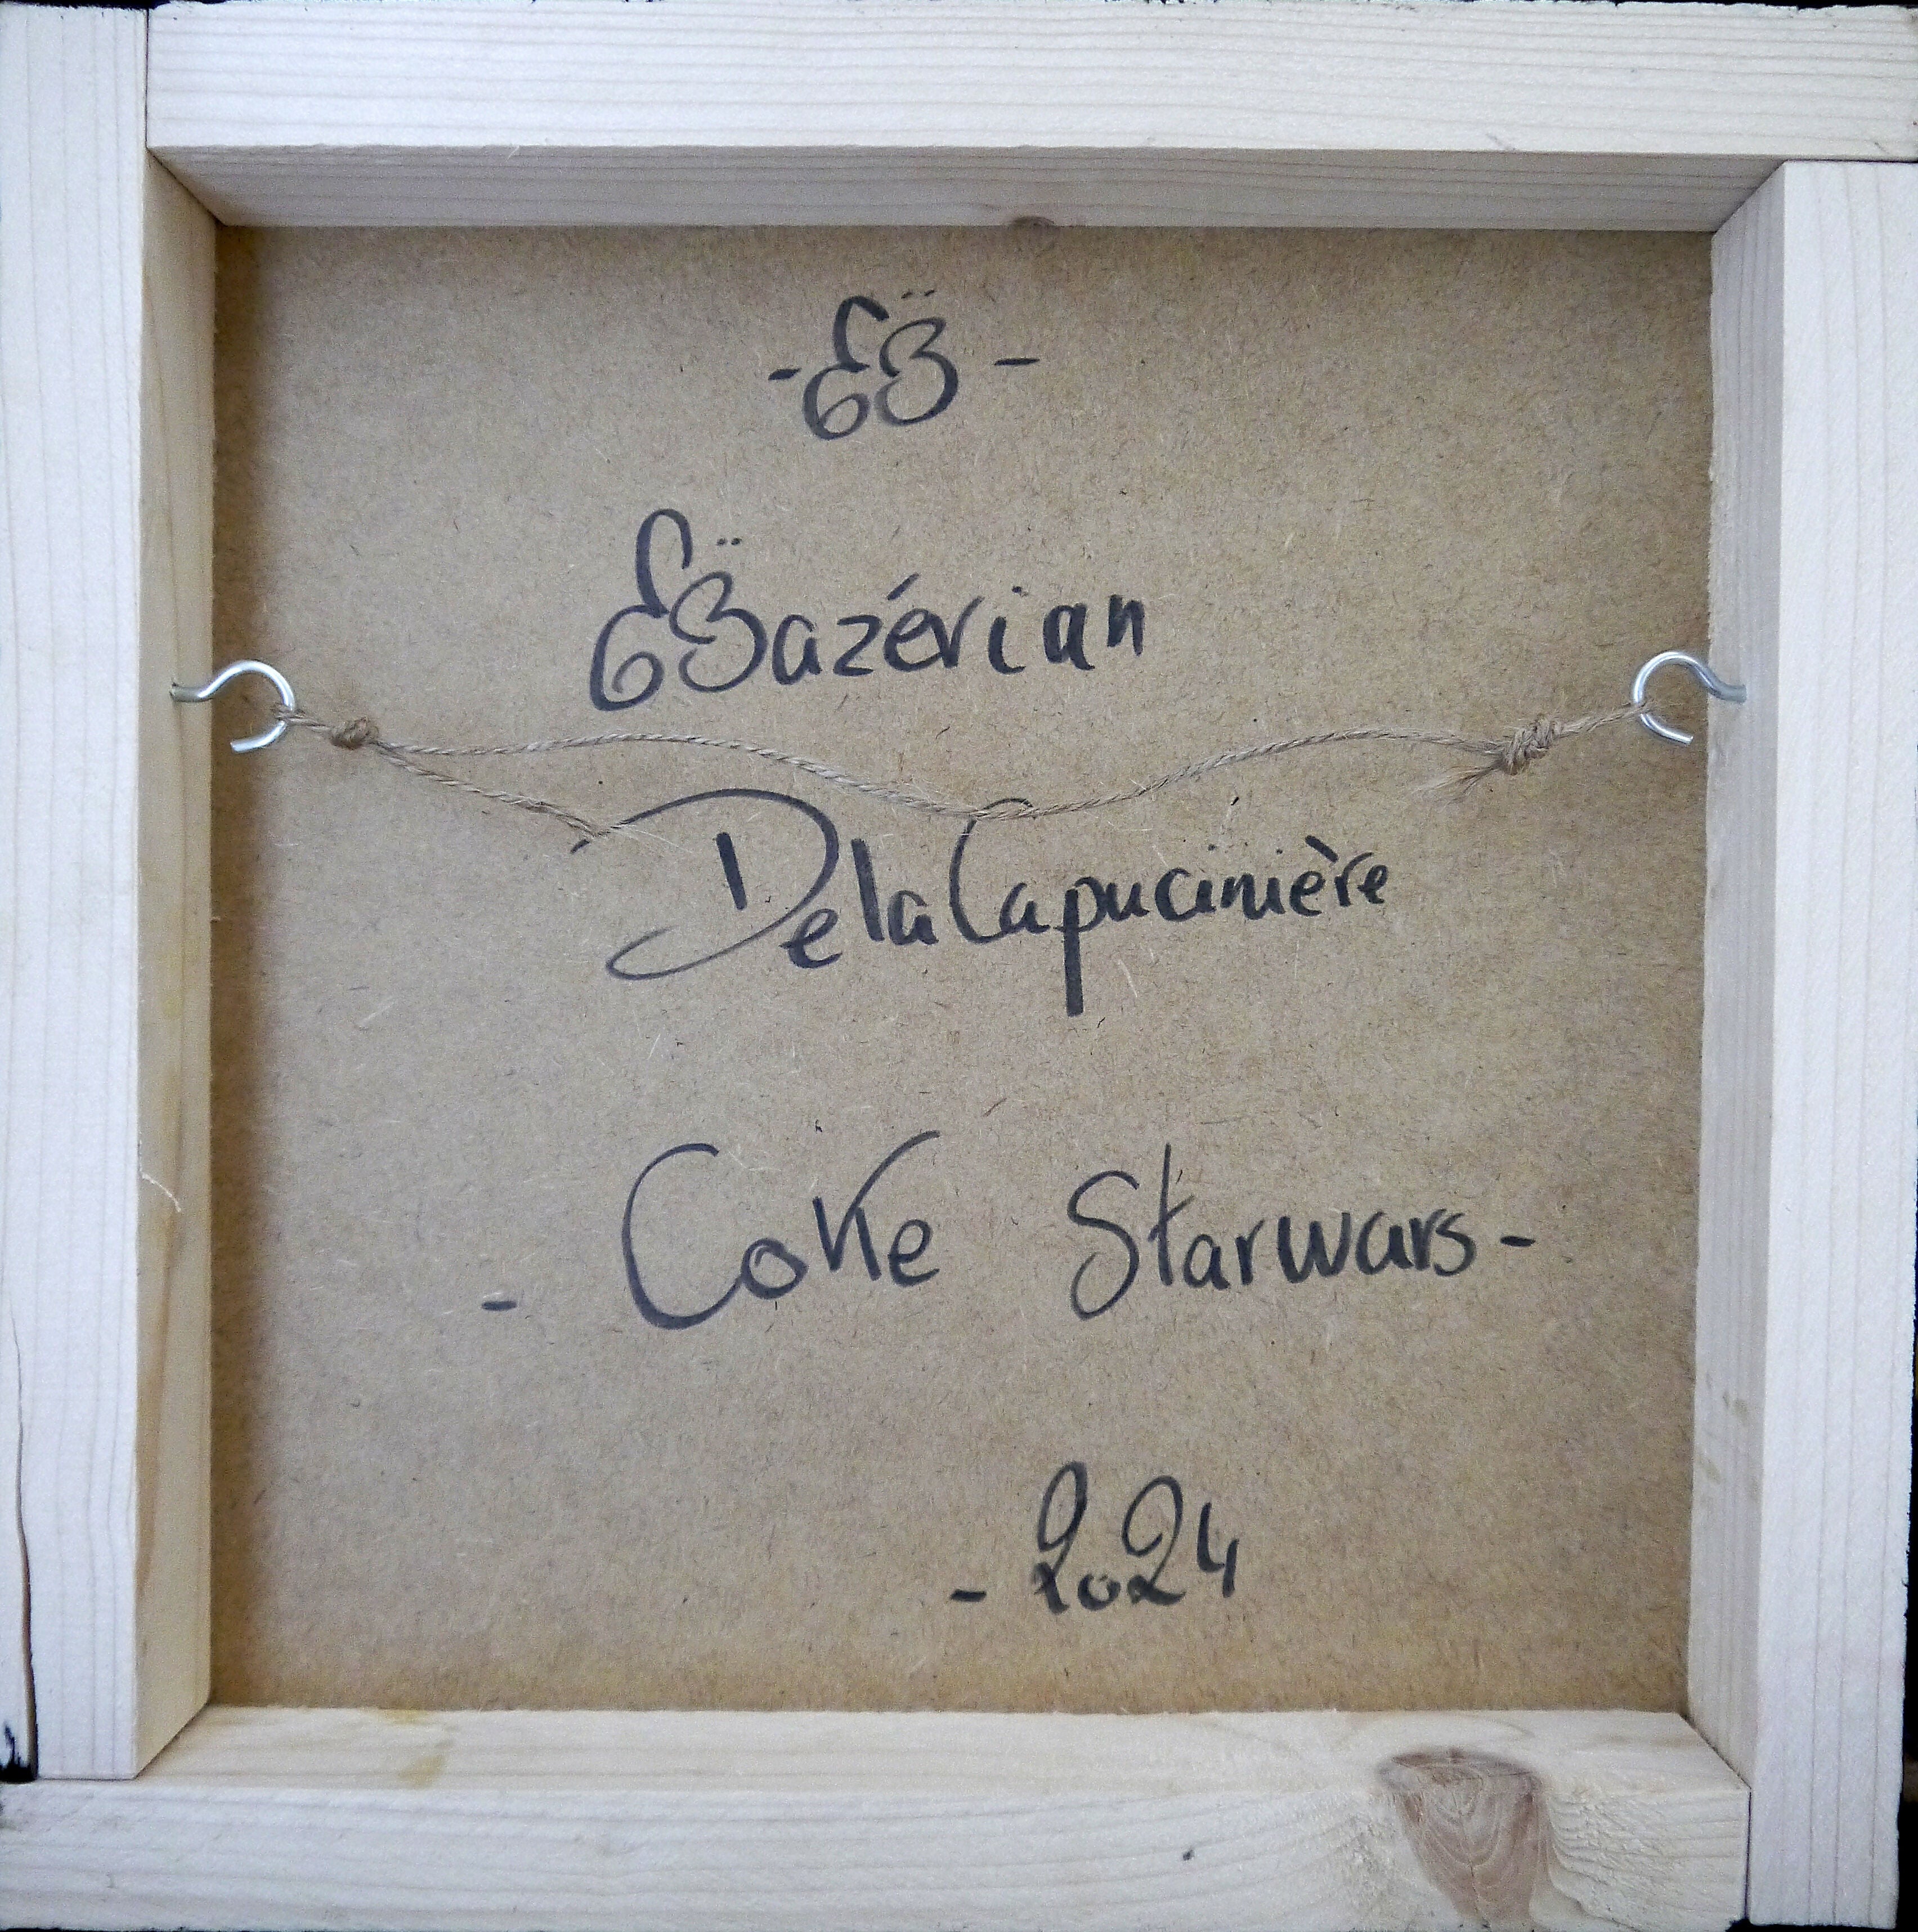 - EB̈ -
EB̈azérian
DelaCapucinière
- Coke Starwars -
- 2024